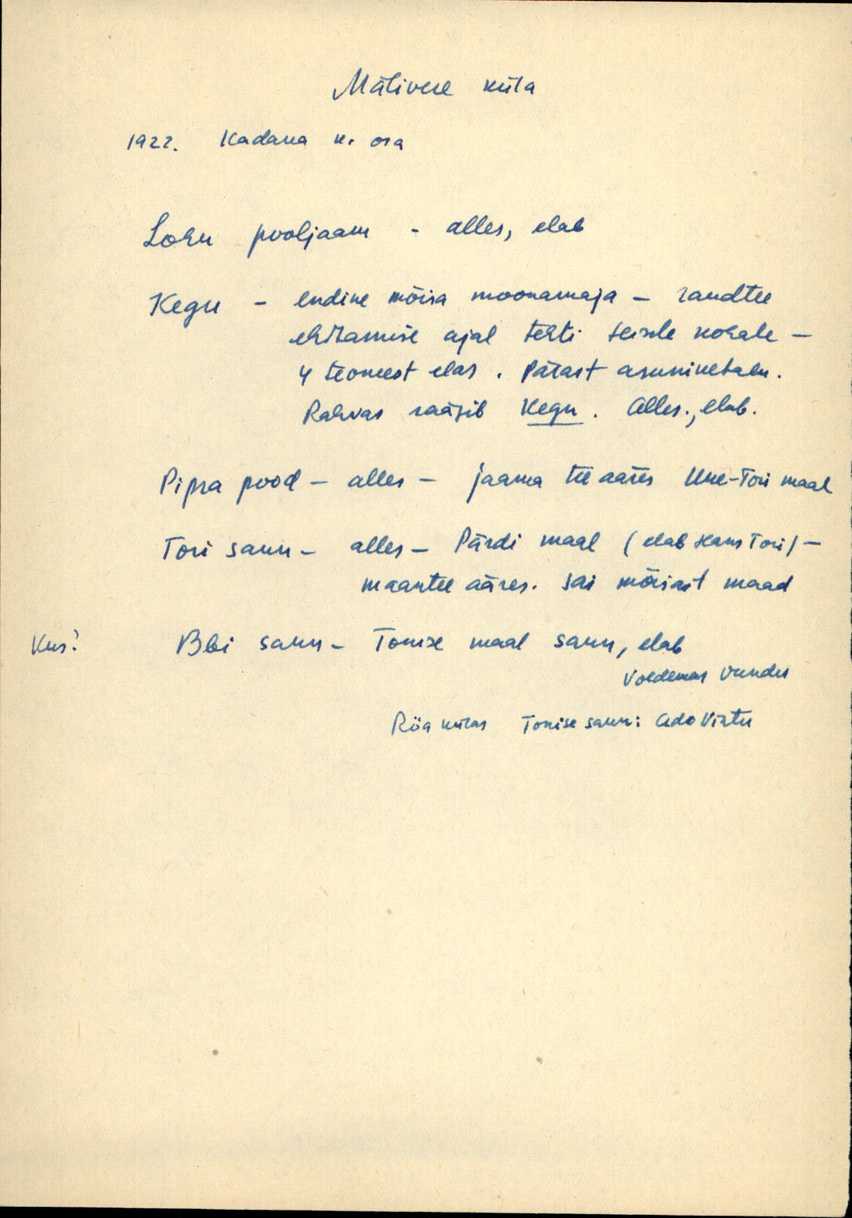 Mälivere küla
1922. Kadaka k. osa
Lohu pooljaam - alles, elab
Kegu - endine mõisa moonamaja - raudtee
ehitamise ajal tehti seisele kohale -
4 teomeest elas. Pärast asunikutalu.
Rahvas räägib Kegu. Alles, elab.
Pipra pood - alles - jaama tee ääres Uue-Tori maal
Tori saun - alles - Pärdi maal (elab Hans Tori) -
maantee ääres. Sai mõisast maad
Kus? Bbi saun - Tomise maal saun, elab
Voldemar
Röa külas Tomise saun: Ado Virtu